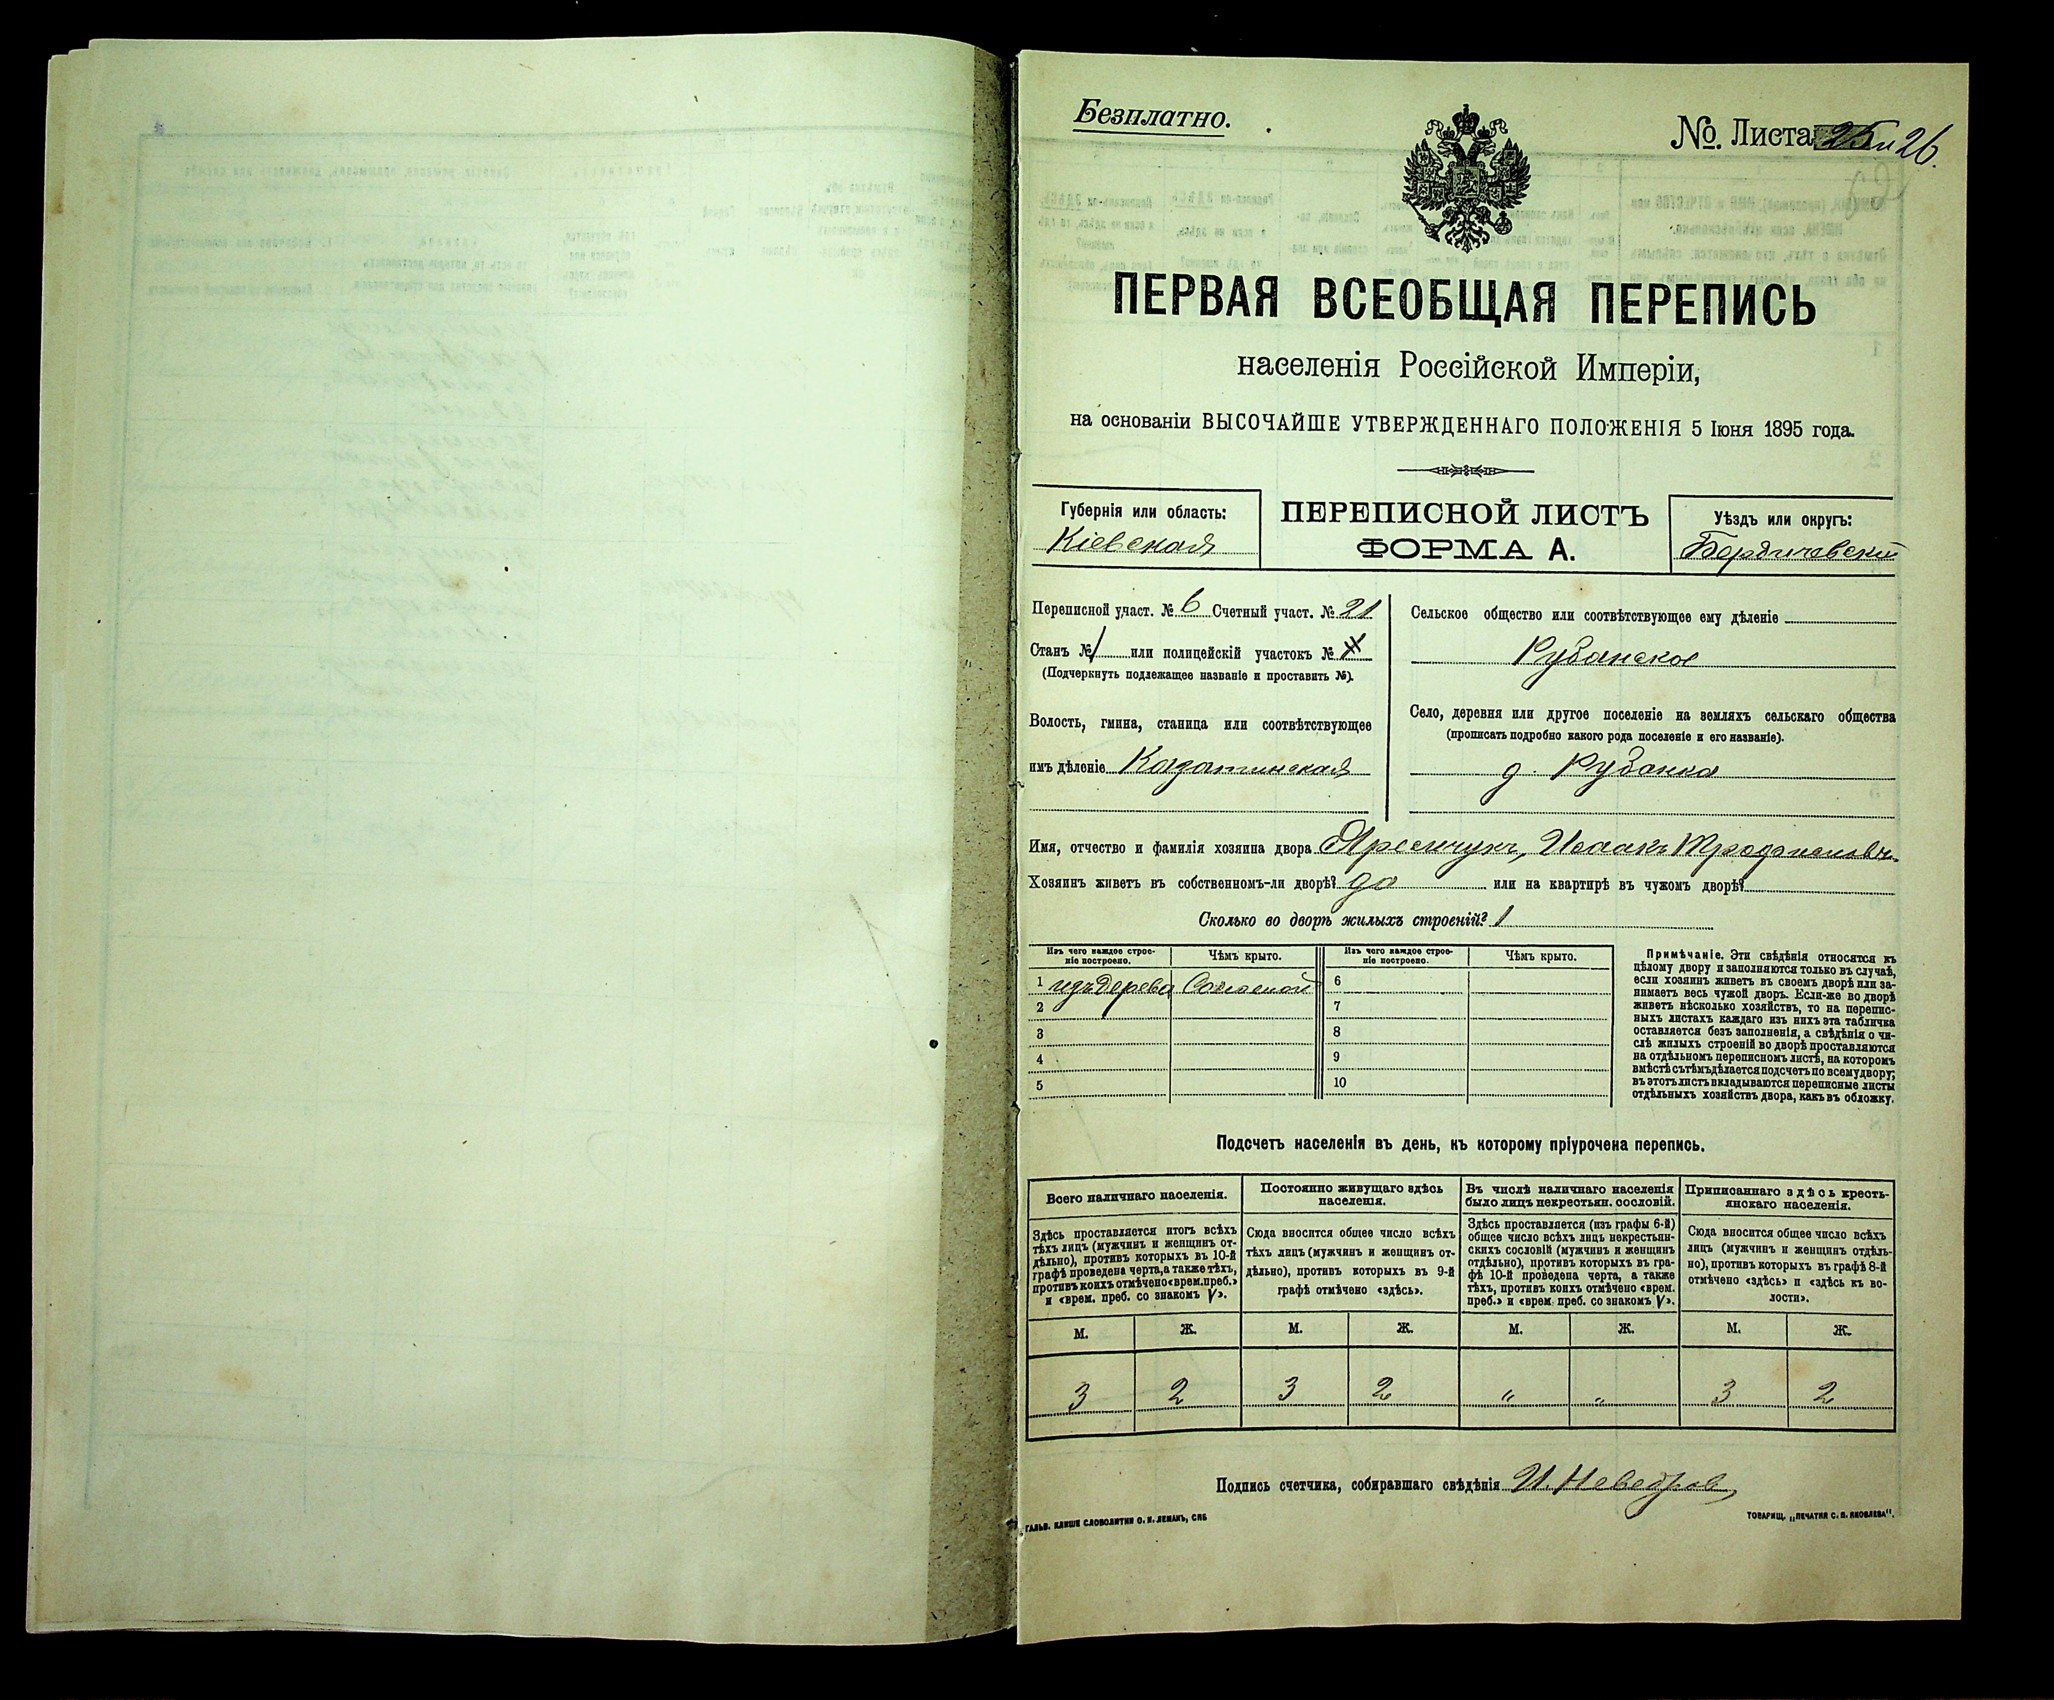 Безплатно.
№. Листа 25 и 26.
ПЕРВАЯ ВСЕОБЩАЯ ПЕРЕПИСЬ
населенія Россійской Имперіи,
на основаніи ВЫСОЧАЙШЕ УТВЕРЖДЕННАГО ПОЛОЖЕНІЯ 5 Іюня 1895 года.
Губернія или область:
Кіевская
ПЕРЕПИСНОЙ ЛИСТЪ
ФОРМА А.
Уѣздъ или округъ:
Бердичевскій
Переписной участ. № 6 Счетный участ. № 21
Станъ № 1 или полицейскій участокъ №
(Подчеркнуть подлежащее названіе и проставить №).
Волость, гмина, станица или соотвѣтствующее
имъ дѣленіе Казатинская
Сельское общество или соотвѣтствующее ему дѣленіе
Рубанское
Село, деревня или другое поселеніе на земляхъ сельскаго общества
(прописать подробно какого рода поселеніе и его названіе).
д. Рубанка
Имя, отчество и фамилія хозяина двора Яремчукъ, Исаакъ
Хозяинъ живетъ въ собственномъ-ли дворѣ? да или на квартирѣ въ чужомъ дворѣ?
Сколько во дворѣ жилыхъ строеній? 1
Изъ чего каждое строе-
ніе построено.
Чѣмъ крыто.
Изъ чего каждое строе-
ніе построено.
Чѣмъ крыто.
1 изъ дерева Соломой 6
2 7
3 8
4 9
5 10
Примѣчаніе. Эти свѣдѣнія относятся къ
цѣлому двору и заполняются только въ случаѣ,
если хозяинъ живетъ въ своемъ дворѣ или за-
нимаетъ весь чужой дворъ. Если-же во дворѣ
живетъ нѣсколько хозяйствъ, то на перепис-
ныхъ листахъ каждаго изъ нихъ эта табличка
оставляется безъ заполненія, а свѣдѣнія о чи-
слѣ жилыхъ строеній во дворѣ проставляются
на отдѣльномъ переписномъ листѣ, на которомъ
вмѣстѣ съ тѣмъ дѣлается подсчетъ по всему двору;
въ этотъ листъ вкладываются переписные листы
отдѣльныхъ хозяйствъ двора, какъ въ обложку.
Подсчетъ населенія въ день, къ которому пріурочена перепись.
Всего наличнаго населенія.
Здѣсь проставляется итогъ всѣхъ
тѣхъ лицъ (мужчинъ и женщинъ от-
дѣльно), противъ которыхъ въ 10-й
графѣ проведена черта, а также тѣхъ,
противъ коихъ отмѣчено «врем. преб.»
и «врем. преб. со знакомъ V».
Постоянно живущаго здѣсь
населенія.
Сюда вносится общее число всѣхъ
тѣхъ лицъ (мужчинъ и женщинъ от-
дѣльно), противъ которыхъ въ 9-й
графѣ отмѣчено «здѣсь».
Въ числѣ наличнаго населенія
было лицъ некрестьян. сословій.
Здѣсь проставляется (изъ графы 6-й)
общее число всѣхъ лицъ некрестьян-
скихъ сословій (мужчинъ и женщинъ
отдѣльно), противъ которыхъ въ гра-
фѣ 10-й проведена черта, а также
тѣхъ, противъ коихъ отмѣчено «врем.
преб.» и «врем. преб. со знакомъ V».
Приписаннаго здѣсь кресть-
янскаго населенія.
Сюда вносится общее число всѣхъ
лицъ (мужчинъ и женщинъ отдѣль-
но), противъ которыхъ въ графѣ 8-й
отмѣчено «здѣсь» и «здѣсь къ во-
лости».
М. Ж. М. Ж. М. Ж. М. Ж.
3 2 3 2 " " 3 2
Подпись счетчика, собиравшаго свѣдѣнія И. Неведров
ГАЛЬВ. КЛИШЕ СЛОВОЛИТНИ О. И. ЛЕМАНЪ, СПБ
ТОВАРИЩ. „ПЕЧАТНЯ С. П. ЯКОВЛЕВА".